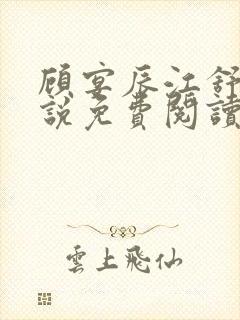 顧宴辰江舒
說免費閱讀
雲上飛仙